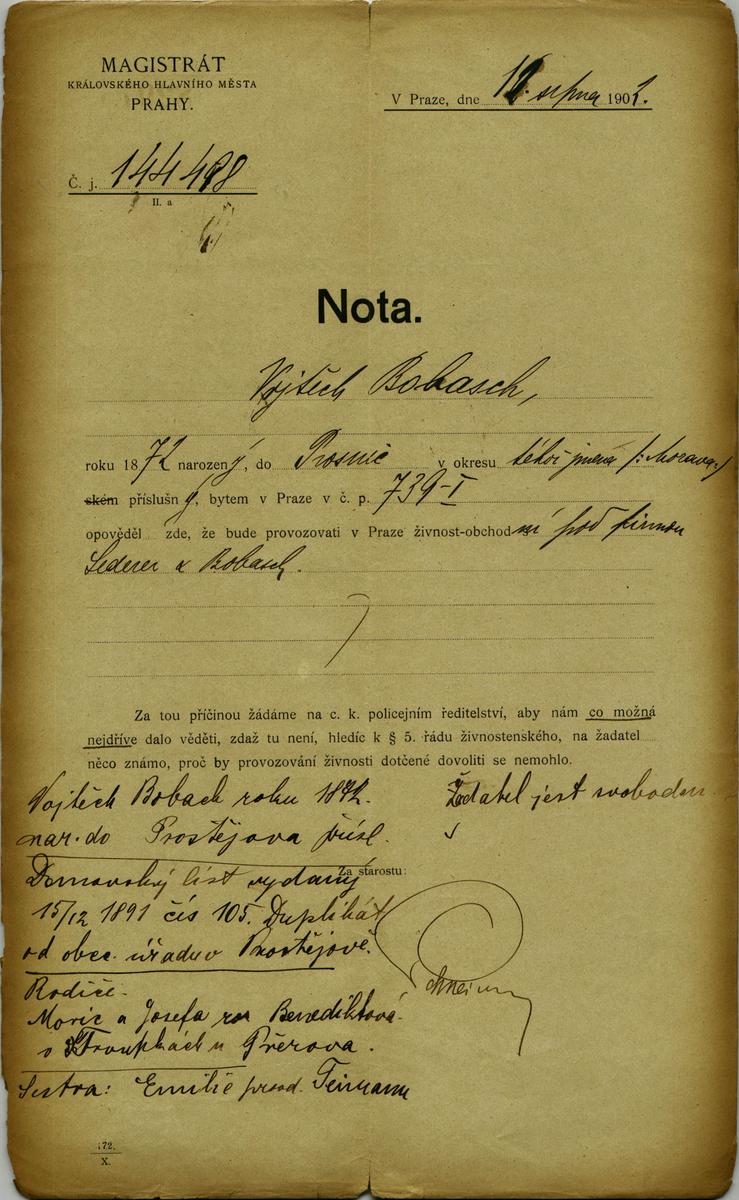 MAGISTRÁT
KRÁLOVSKÉHO HLAVNÍHO MĚSTA
PRAHY.
V Praze, dne 12. srpna 1902.
Č. j. 144498
II. a
Nota.
Vojtěch Bobasch,
roku 1872 narozený, do Prosnic v okresu téhož jména /: Morava:/
ském příslušný, bytem v Praze v č. p. 739-I
opověděl zde, že bude provozovati v Praze živnost-obchodní pod firmou
Lederer a Bobasch.
Za tou příčinou žádáme na c. k. policejním ředitelství, aby nám co možná
nejdříve dalo věděti, zdaž tu není, hledíc k § 5. řádu živnostenského, na žadatel
něco známo, proč by provozování živnosti dotčené dovoliti se nemohlo.
Vojtěch Bobach roku 1872.
nar. do Prostějova přísl.
Žadatel jest svoboden
Domovský list vydaný
Za starostu:
15/12 1891 čís 105. Duplikát
od obec. úřadu v Prostějově.
Rodiče.
Moric a Josefa roz Benediktová
v Troupkách u Přerova.
Sestra: Emilie provd. Teimann
172.
X.